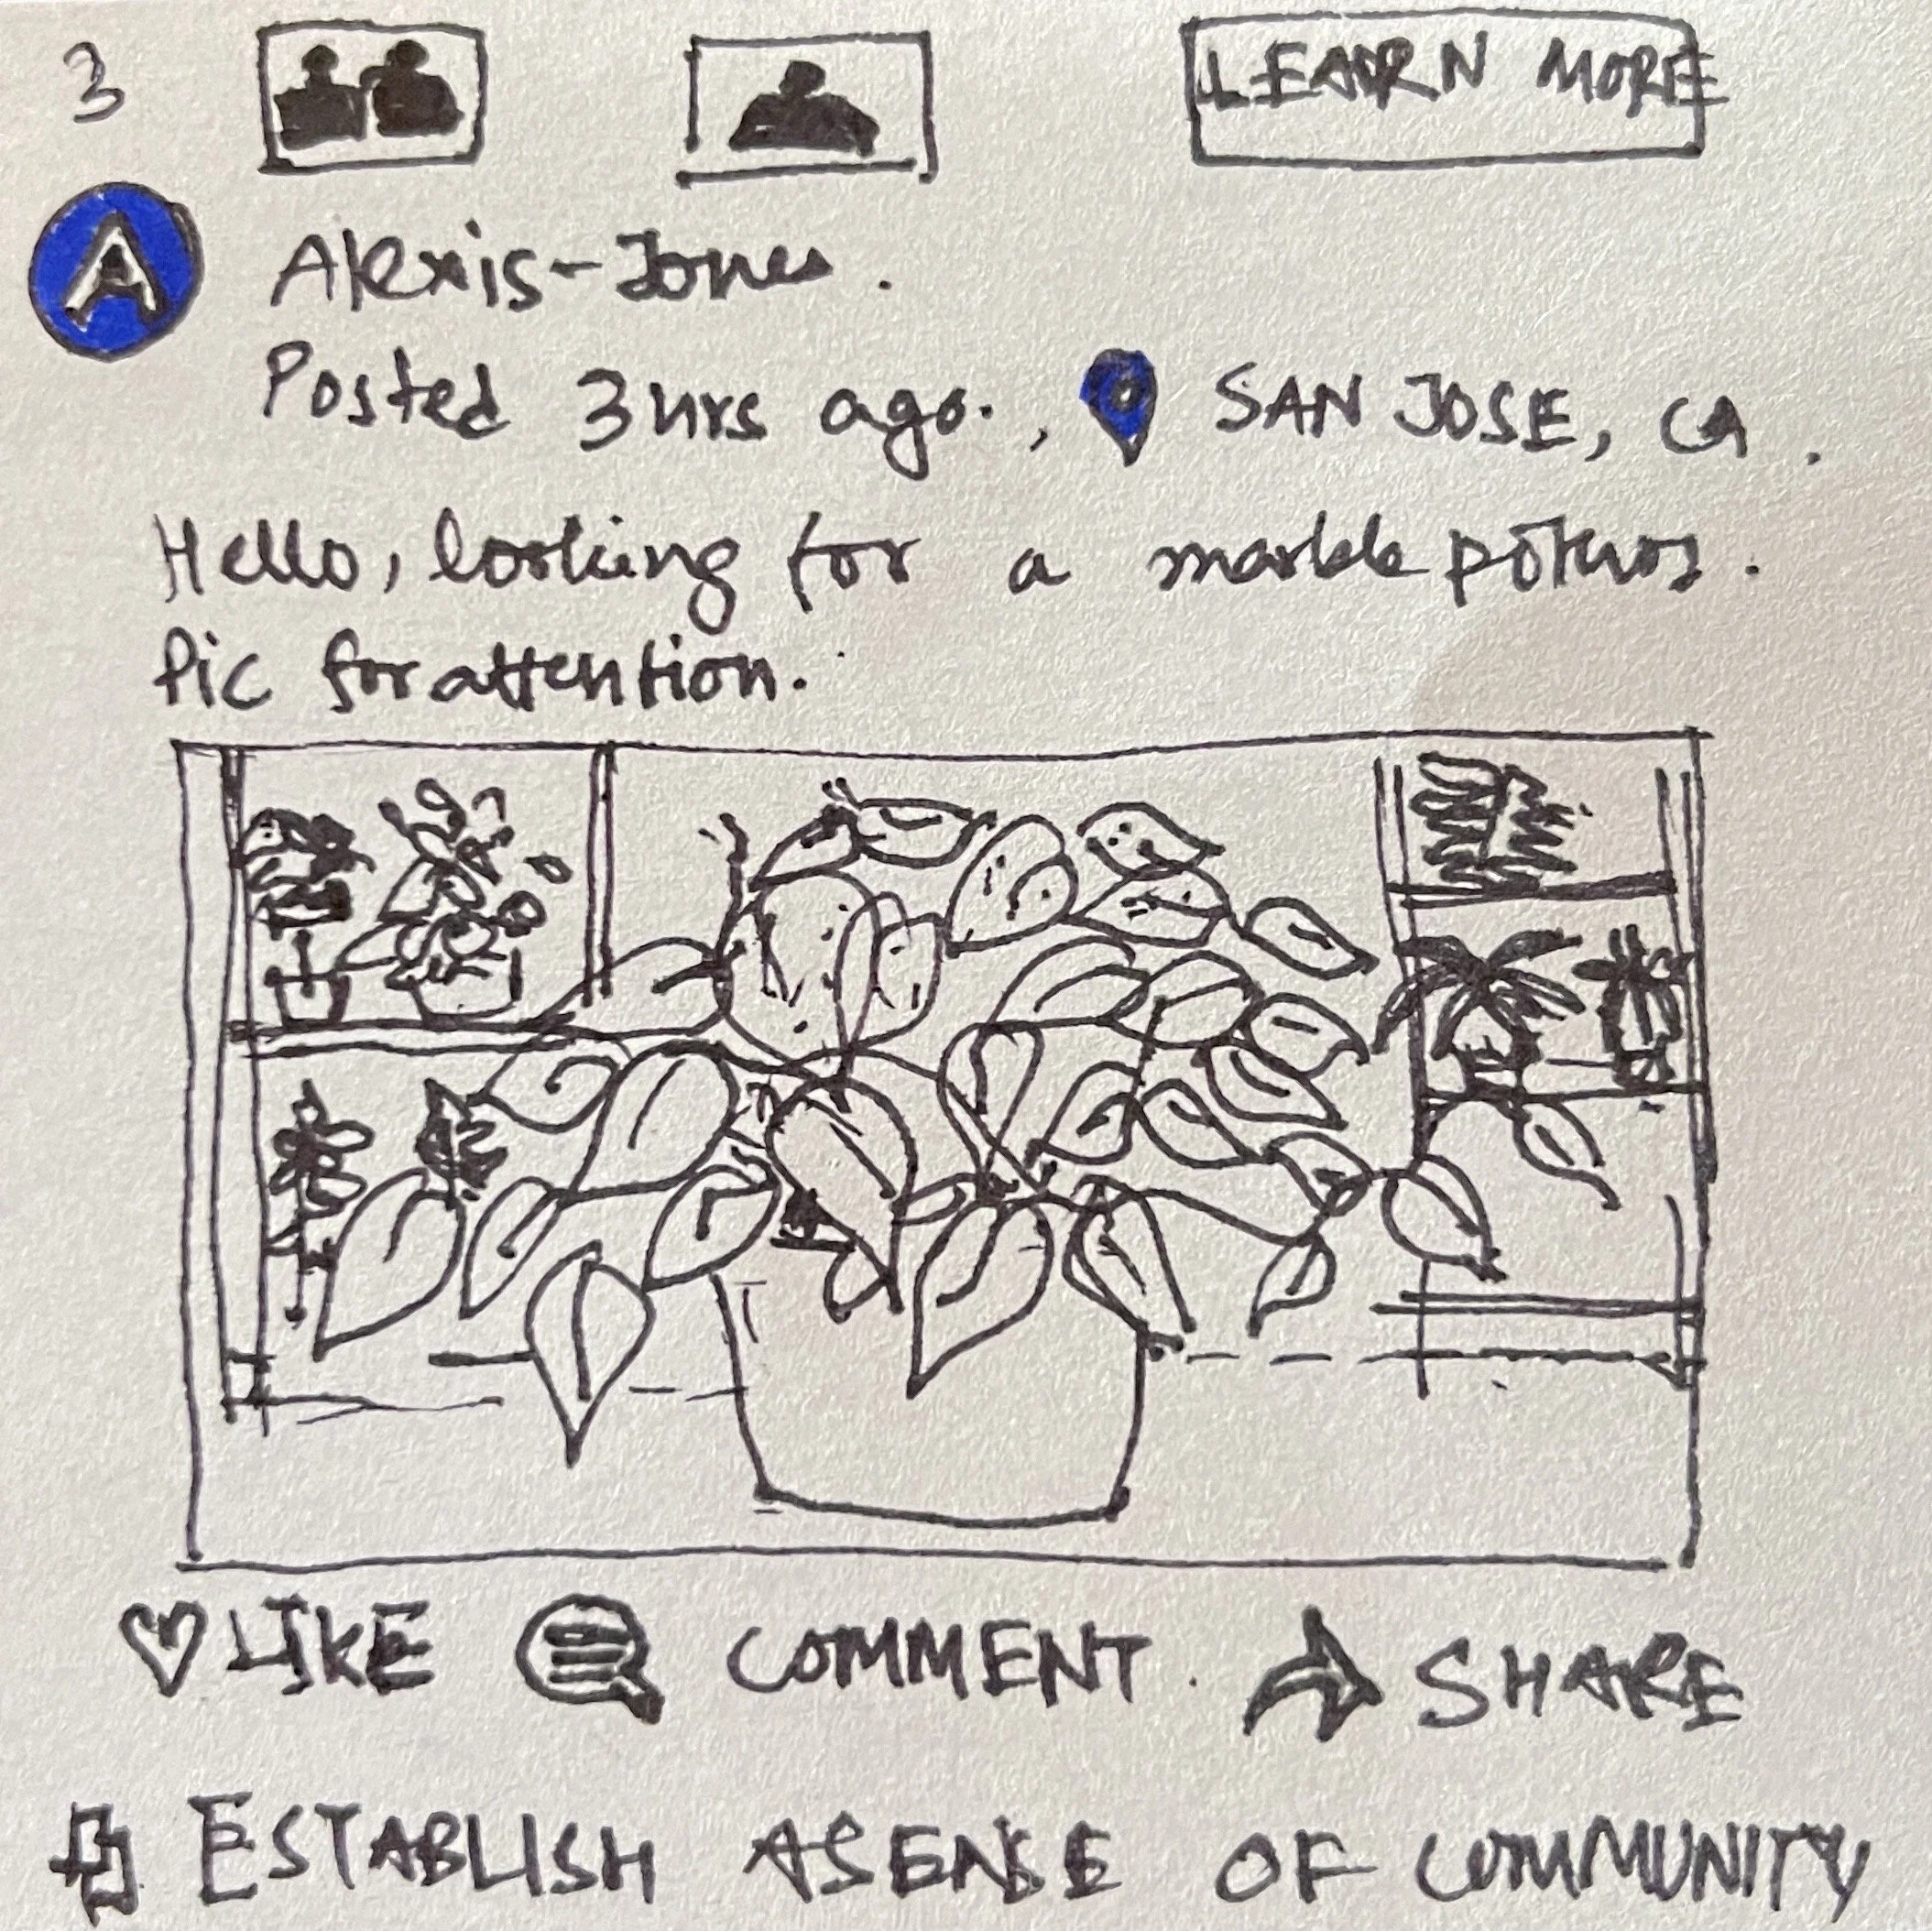 3 LEARN MORE
A Alexis-Jones.
Posted 3hrs ago., SAN JOSE, CA.
Hello, looking for a marble pothos.
Pic for attention.
LIKE COMMENT. SHARE
ESTABLISH A SENSE OF COMMUNITY